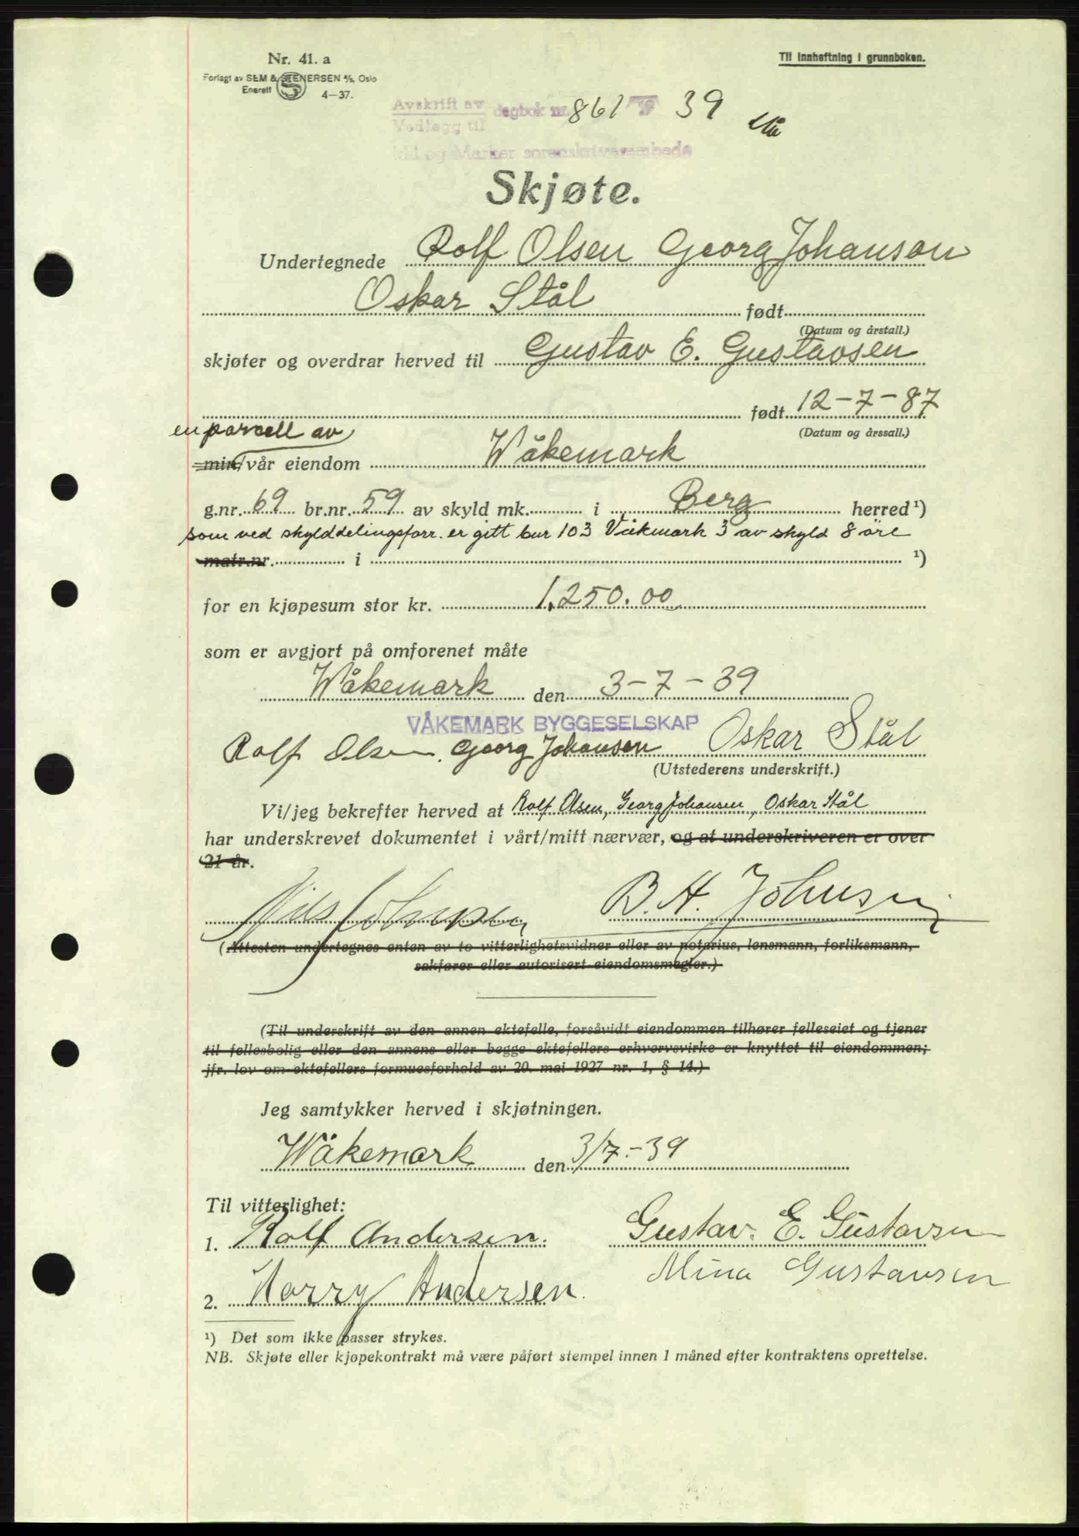 Nr. 41. a
Til innheftning i grunnboken.
Forlagt av SEM & STENERSEN A/S, Oslo
Enerett 4-37.
Avskrift av
Vedlegg til dagbok nr. 861 39
og Marker sorenskriverembede
Skjøte.
Undertegnede Rolf Olsen Georg Johanson
Oskar Stål født
(Datum og årstall.)
skjøter og overdrar herved til Gustav E. Gustavsen
født 12-7-87
(Datum og årssall.)
en parcell av
min/vår eiendom Wåkemark
g.nr. 69 br.nr. 59 av skyld mk. i Berg herred ¹)
som ved skylddelingsforr. er gitt bnr 103 Våkmark 3 av skyld 8 øre
matr.nr. i ¹)
for en kjøpesum stor kr. 1.250.00
som er avgjort på omforenet måte
Wåkemark den 3-7-39
VÅKEMARK BYGGESELSKAP
Rolf Olsen. Georg Johansen Oskar Stål
(Utstederens underskrift.)
Vi/jeg bekrefter herved at Rolf Olsen, Georg Johansen, Oskar Stål
har underskrevet dokumentet i vårt/mitt nærvær, og at underskriveren er over
21 år.
Nils Johnsen B. H. Johnsen
(Attesten undertegnes enten av to vitterlighetsvidner eller av notarius, lensmann, forliksmann,
sakfører eller autorisert eiendomsmegler.)
(Til underskrift av den annen ektefelle, forsåvidt eiendommen tilhører felleseiet og tjener
til fellesbolig eller den annens eller begge ektefellers erhvervsvirke er knyttet til eiendommen;
jfr. lov om ektefellers formuesforhold av 20. mai 1927 nr. 1, § 14.)
Jeg samtykker herved i skjøtningen.
Wåkemark den 3/7.-39
Til vitterlighet:
1. Rolf Andersen. Gustav. E. Gustavsen
Mina Gustavsen
2. Harry Andersen.
¹) Det som ikke passer strykes.
NB. Skjøte eller kjøpekontrakt må være påført stempel innen 1 måned efter kontraktens oprettelse.